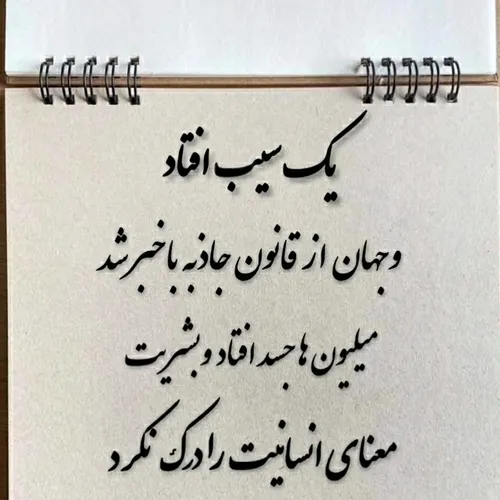 یک سیب افتاد
وجهان از قانون جاذبه باخبر شد
میلیون ها جسد افتاد و بشریت
معنای انسانیت را درک نکرد